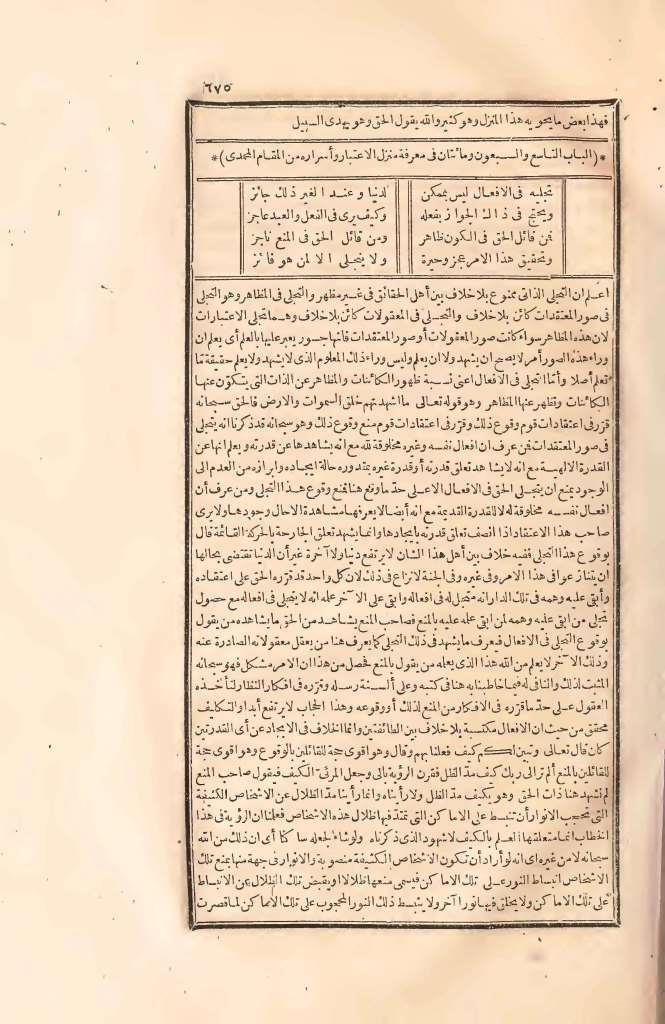 ٦٧٥
فهذا بعض ما يحويه هذا المنزل وهو كثير والله يقول الحق وهو يهدى السبيل
*(الباب التاسع والسبعون ومائتان فى معرفة منزل الاعتبار وأسراره من المقام المحمدى)*
تجليه فى الافعال ليس بممكن لدنيا وعند الغير ذلك جائز
ويحتج فى ذاك الجواز بفعله وكيف يرى فى الفعل والعبد عاجز
فمن قائل الحق فى الكون ظاهر ومن قائل الحق فى المنع ناجز
وتحقيق هذا الامر عجز وحيرة ولا يتجلى الا لمن هو فائز
اعلم ان التجلى الذاتى ممنوع بلا خلاف بين أهل الحقائق فى غير مظهر والتجلى فى المظاهر وهو التجلى
فى صور المعتقدات كائن بلا خلاف والتجلى فى المعقولات كائن بلا خلاف وهما تجلى الاعتبارات
لان هذه المظاهر سواء كانت صور المعقولات أو صور المعتقدات فانها جسور يعبر عليها بالعلم أى يعلم ان
وراء هذه الصور أمر لا يصح ان يشهد ولا ان يعلم وليس وراء ذلك المعلوم الذى لا يشهد ولا يعلم حقيقة ما
تعلم أصلا وأما التجلى فى الافعال اعنى نسبة ظهور الكائنات والمظاهر عن الذات التى يتكون عنها
الكائنات وتظهر عنها المظاهر وهو قوله تعالى ما اشهدتهم خلق السموات والارض فالحق سبحانه
قرر فى اعتقادات قوم وقوع ذلك وقرر فى اعتقادات قوم منع وقوع ذلك وهو سبحانه قد ذكرنا انه يتجلى
فى صور المعتقدات فمن عرف ان افعال نفسه وغيره مخلوقة لله مع انه يشاهدها عن قدرته ويعلم انها عن
القدرة الالهية مع انه لا يشاهد تعلق قدرته أو قدرة غيره بمقدوره حالة ايجاده وابرازه من العدم الى
الوجود يمنع ان يتجلى الحق فى الافعال الا على حد ما وقع هنا فمنع وقوع هذا التجلى ومن عرف أن
افعال نفسه مخلوقة له لا للقدرة القديمة مع انه أيضا لا يعرفها مشاهدة الا حال وجودها ولا يرى
صاحب هذا الاعتقاد اذا انصف تعلق قدرته بايجادها وانما يشهد تعلق الجارحة بالحركة القائمة قال
بوقوع هذا التجلى ففيه خلاف بين أهل هذا الشان لا يرتفع دنيا ولا آخرة غير أن الدنيا تقتضى بحالها
ان يتنازعوا فى هذا الامر وفى غيره وفى الجنة لا نزاع فى ذلك لان كل واحد قد قرره الحق على اعتقاده
وأبقى عليه وهمه فى تلك الدار انه متجل له فى افعاله وابقى على الآخر علمه انه لا يتجلى فى افعاله مع حصول
تجلى من ابقى عليه وهمه لمن ابقى علمه عليه بالمنع فصاحب المنع يشاهد من الحق ما يشاهده من يقول
بوقوع التجلى فى الافعال فيعرف ما يشهد فى ذلك التجلى كما يعرف هنا من يعقل معقولاته الصادرة عنه
وذلك الآخر لا يعلم من الله هذا الذى يعلمه من يقول بالمنع فحصل من هذا ان الامر مشكل فهو سبحانه
المثبت لذلك والنافى له فيما خاطبنا به هنا فى كتبه وعلى ألسنة رسله وقرره فى افكار النظار لتأخذه
العقول على حد ما قرره فى الافكار من المنع لذلك أو وقوعه وهذا الحجاب لا يرتفع أبدا والتكليف
محقق من حيث ان الافعال مكتسبة بلا خلاف بين الطائفتين وانما الخلاف فى الايجاد عن أى القدرتين
كان قال تعالى وتبين لكم كيف فعلنا بهم وقال وهو اقوى حجة للقائلين بالوقوع وهو اقوى حجة
للقائلين بالمنع ألم تر الى ربك كيف مد الظل فقرن الرؤية بالى وجعل المرئى الكيف فيقول صاحب المنع
لم نشهد هنا ذات الحق وهو يكيف مد الظل ولا رأيناه وانما رأينا مد الظلال عن الاشخاص الكثيفة
التى تحجب الانوار أن تنبسط على الاماكن التى تمتد فيها ظلال هذه الاشخاص فعلمنا ان الرؤية فى هذا
الخطاب انما متعلقها العلم بالكيف لا شهود الذى ذكرناه ولو شاء لجعله ساكنا أى ان ذلك من الله
سبحانه لا من غيره اى انه لو أراد أن تكون الاشخاص الكثيفة منصوبة والانوار فى جهة منها يمنع تلك
الاشخاص انبساط النور على تلك الاماكن فيسمى منعها ظلالا او يقبض تلك الظلال عن الانبساط
على تلك الاماكن ولا يخلق فيها نورا آخر ولا ينبسط ذلك النور المحجوب على تلك الاماكن لما قصرت